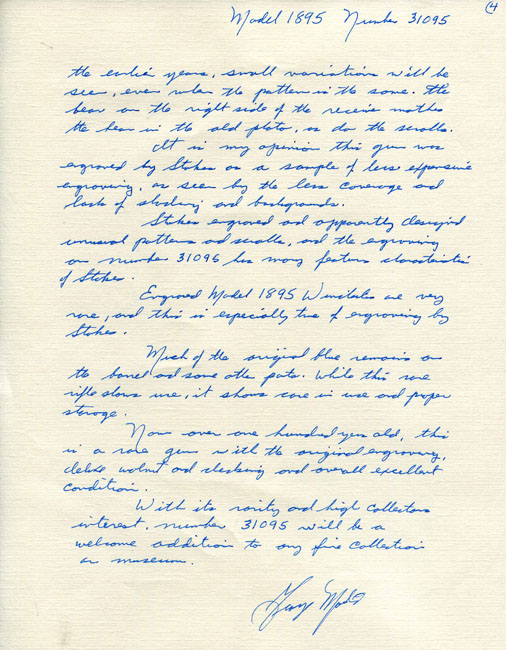 4
Model 1895 Number 31095
the earlier years, small variations will be
seen, even when the pattern is the same. The
bear on the right side of the receiver matches
the bear in the old photo, as do the scrolls.
It is my opinion this gun was
engraved by Stokes as a sample of less expensive
engraving, as seen by the less coverage and
lack of shading and backgrounds.
Stokes engraved and apparently designed
unusual patterns and scrolls, and the engraving
on number 31095 has many features characteristic
of Stokes.
Engraved Model 1895 Winchesters are very
rare, and this is especially true of engraving by
Stokes.
Much of the original blue remains on
the barrel and some other parts. While this rare
rifle shows use, it shows care in use and proper
storage.
Now over one hundred years old, this
is a rare gun with the original engraving,
deluxe walnut and checking and overall excellent
condition.
With its rarity and high collectors
interest, number 31095 will be a
welcome addition to any fine collection
or museum.
George Madis